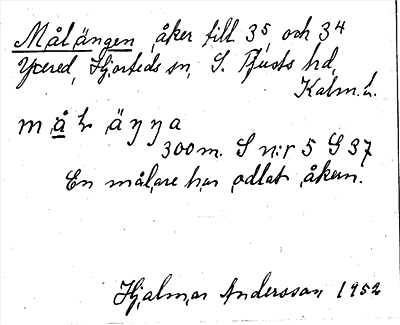 Målängen åker till 3⁵ och 3⁴
Ycered, Hjorteds sn, S. Tjusts hd,
Kalm. L.
målänna
300 m. S n:r 5 G 37
En målare har odlat åkern.
Hjalmar Andersson 1952